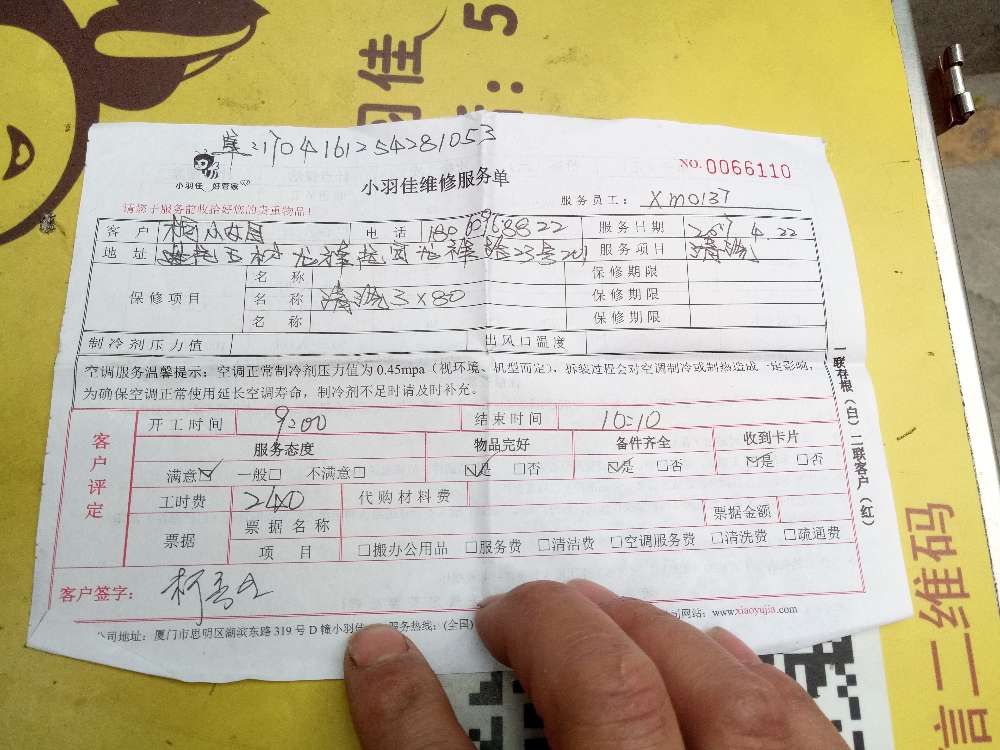 单:170416125428 1053
小羽佳 好管家
小羽佳维修服务单
NO.0066110
请您于服务前收拾好您的贵重物品!
服务员工: XM0137
客户 电话 服务日期 2017.4.22
地址 23号201 服务项目 清洗
保修项目
名称 保修期限
名称 清洗3×80 保修期限
名称 保修期限
制冷剂压力值 出风口温度
空调服务温馨提示:空调正常制冷剂压力值为0.45mpa(视环境、机型而定),拆装过程会对空调制冷或制热造成一定影响,
为确保空调正常使用延长空调寿命,制冷剂不足时请及时补充。
客户评定
开工时间 9:00 结束时间 10:10
服务态度 物品完好 备件齐全 收到卡片
满意☑ 一般□ 不满意□ ☑是 □否 ☑是 □否 ☑是 □否
工时费 240 代购材料费
票据 票据名称 票据金额
项目 □搬办公用品 □服务费 □清洁费 □空调服务费 □清洗费 □疏通费
客户签字:
公司地址:厦门市思明区湖滨东路319号D幢小羽佳 服务热线:(全国) 司网站:www.xiaoyujia.com
一联存根(白)二联客户(红)
羽佳
5
言二维码